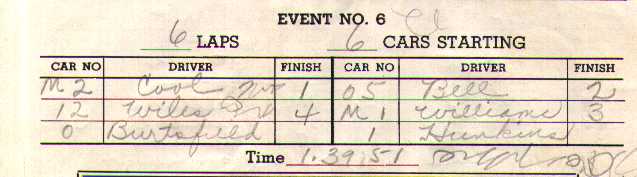 EVENT NO. 6
6 LAPS 6 CARS STARTING
CAR NO DRIVER FINISH CAR NO DRIVER FINISH
M2 Cool 1 05 Bell 2
12 Wiles 4 M1 Williams 3
0 Burtsfield 1 Hunkins
Time 1.39.51